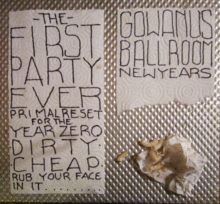 -THE-
FIRST
PARTY
EVER
PRIMAL RESET
FOR THE
YEAR ZERO
DIRTY.
CHEAP.
RUB YOUR FACE
IN IT.........
GOWANUS
BALLROOM
NEW YEARS